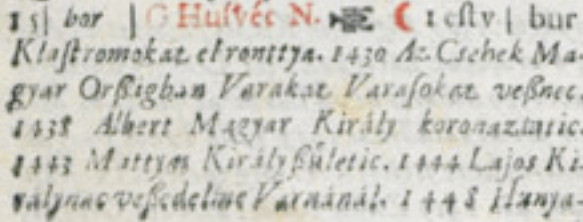 15 | bor | G Huſvéc N. 1 eſtv | bur
Klaſtromokat elronttya. 1430 Az Csehek Ma-
gyar Orßighan Varakat Varaſokat veßnec.
1438 Albert Magyar Király koronaztatic
1443 Mattyas Király ßületic. 1444 Lajos Ki
rálynac veßedelme Varnánál. 1448 Hunya